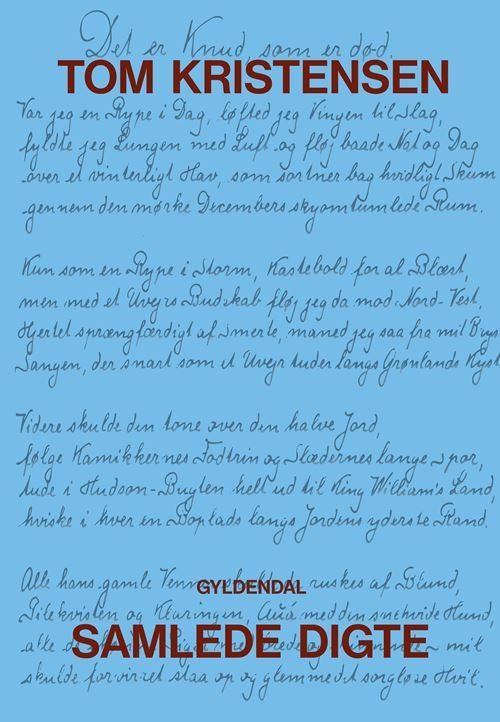 Det er Knud, som er død.
TOM KRISTENSEN
Var jeg en Rype i Dag, løfted jeg Vingen til Slag,
fyldte jeg Lungen med Luft og fløj baade Nat og Dag
over et vinterligt Hav, som sortner bag hvidligt Skum
gennem den mørke Decembers skyomtumlede Rum.
Kun som en Rype i Storm, Kastebold for al Blæst,
men med et Uvejrs Budskab fløj jeg da mod Nord-Vest,
Hjertet sprængfærdigt af Smerte, maned jeg saa fra mit Brys
Sangen, der snart som et Uvejr tuder langs Grønlands Kyst
Videre skulde den tone over den halve Jord,
følge Kamikkernes Fodtrin og Slædernes lange Spor,
tude i Hudson-Bugten helt ud til King William's Land
hviske i hver en Boplads langs Jordens yderste Rand.
Alle hans gamle Venner skulde ruskes af Blund,
GYLDENDAL
Pilekvisten og Ataringen, Auá med den snehvide Hund,
alle
SAMLEDE DIGTE
skulde forvirret staa op og glemme det sorgløse Hvil.